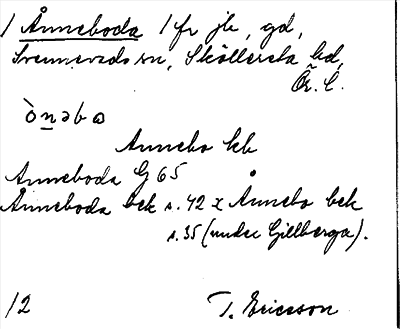 1 Ånneboda 1 fr jb, gd,
Svennevads sn, Sköllersta hd,
Ör. l.
ò̀n̲əbɷ
Annebo kb
Anneboda G 65
Ånneboda bek s. 42 x Ånnebo bek
s. 35 (under Gillberga).
12 T. Ericsson